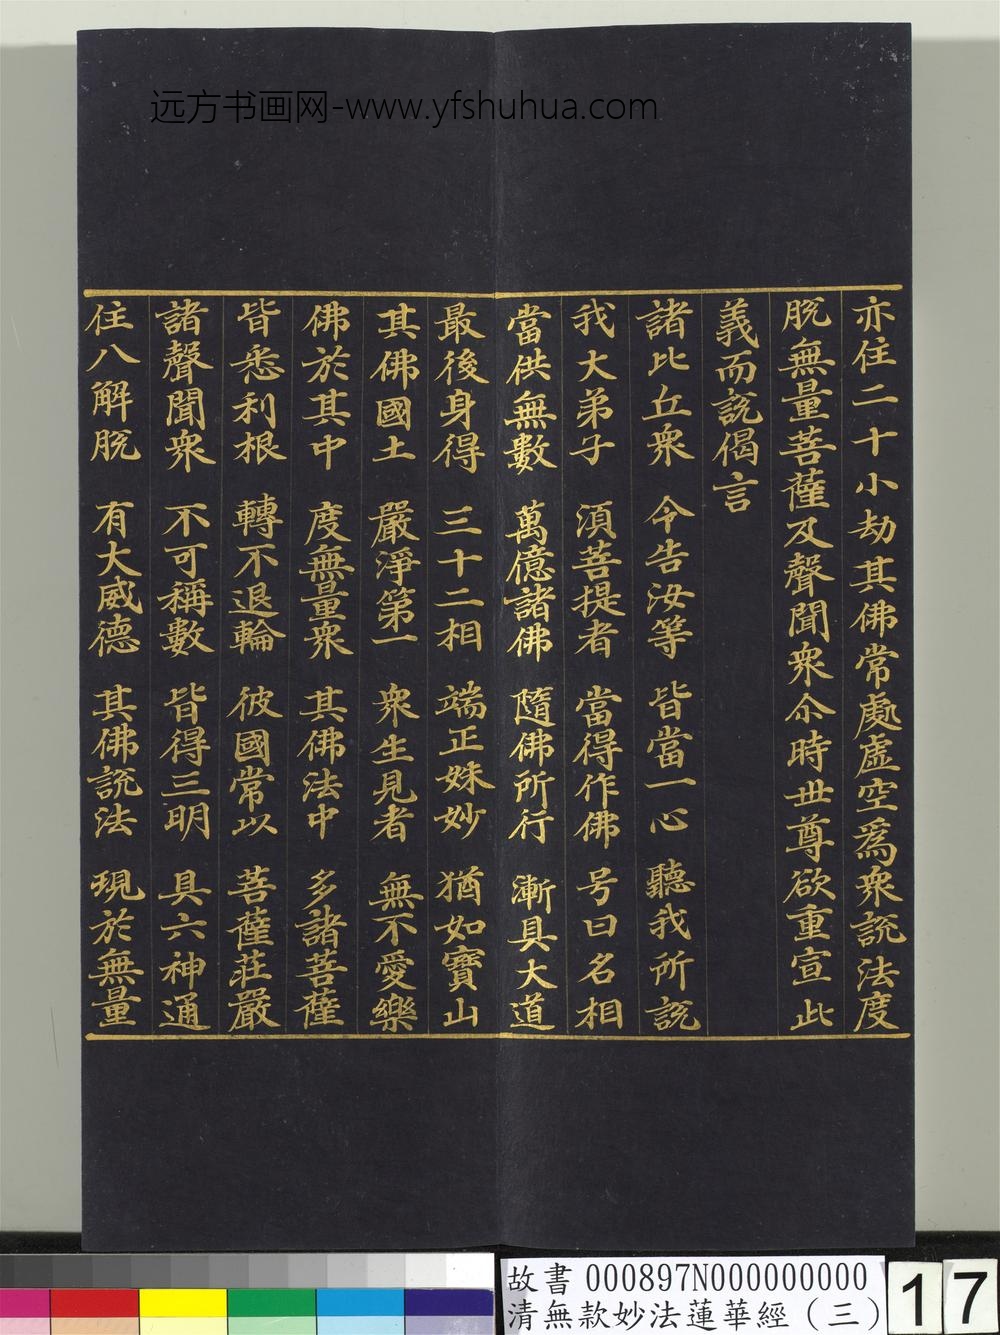 远方书画网-www.yfshuhua.com
亦住二十小劫其佛常處虛空為衆説法度
脱無量菩薩及聲聞衆尒時世尊欲重宣此
義而説偈言
諸比丘衆 今告汝等 皆當一心 聽我所説
我大弟子 須菩提者 當得作佛 号曰名相
當供無數 萬億諸佛 隨佛所行 漸具大道
最後身得 三十二相 端正姝妙 猶如寶山
其佛國土 嚴淨第一 衆生見者 無不愛樂
佛於其中 度無量衆 其佛法中 多諸菩薩
皆悉利根 轉不退輪 彼國常以 菩薩莊嚴
諸聲聞衆 不可稱數 皆得三明 具六神通
住八解脱 有大威德 其佛説法 現於無量
故書 000897N000000000
清無款妙法蓮華經（三）
17